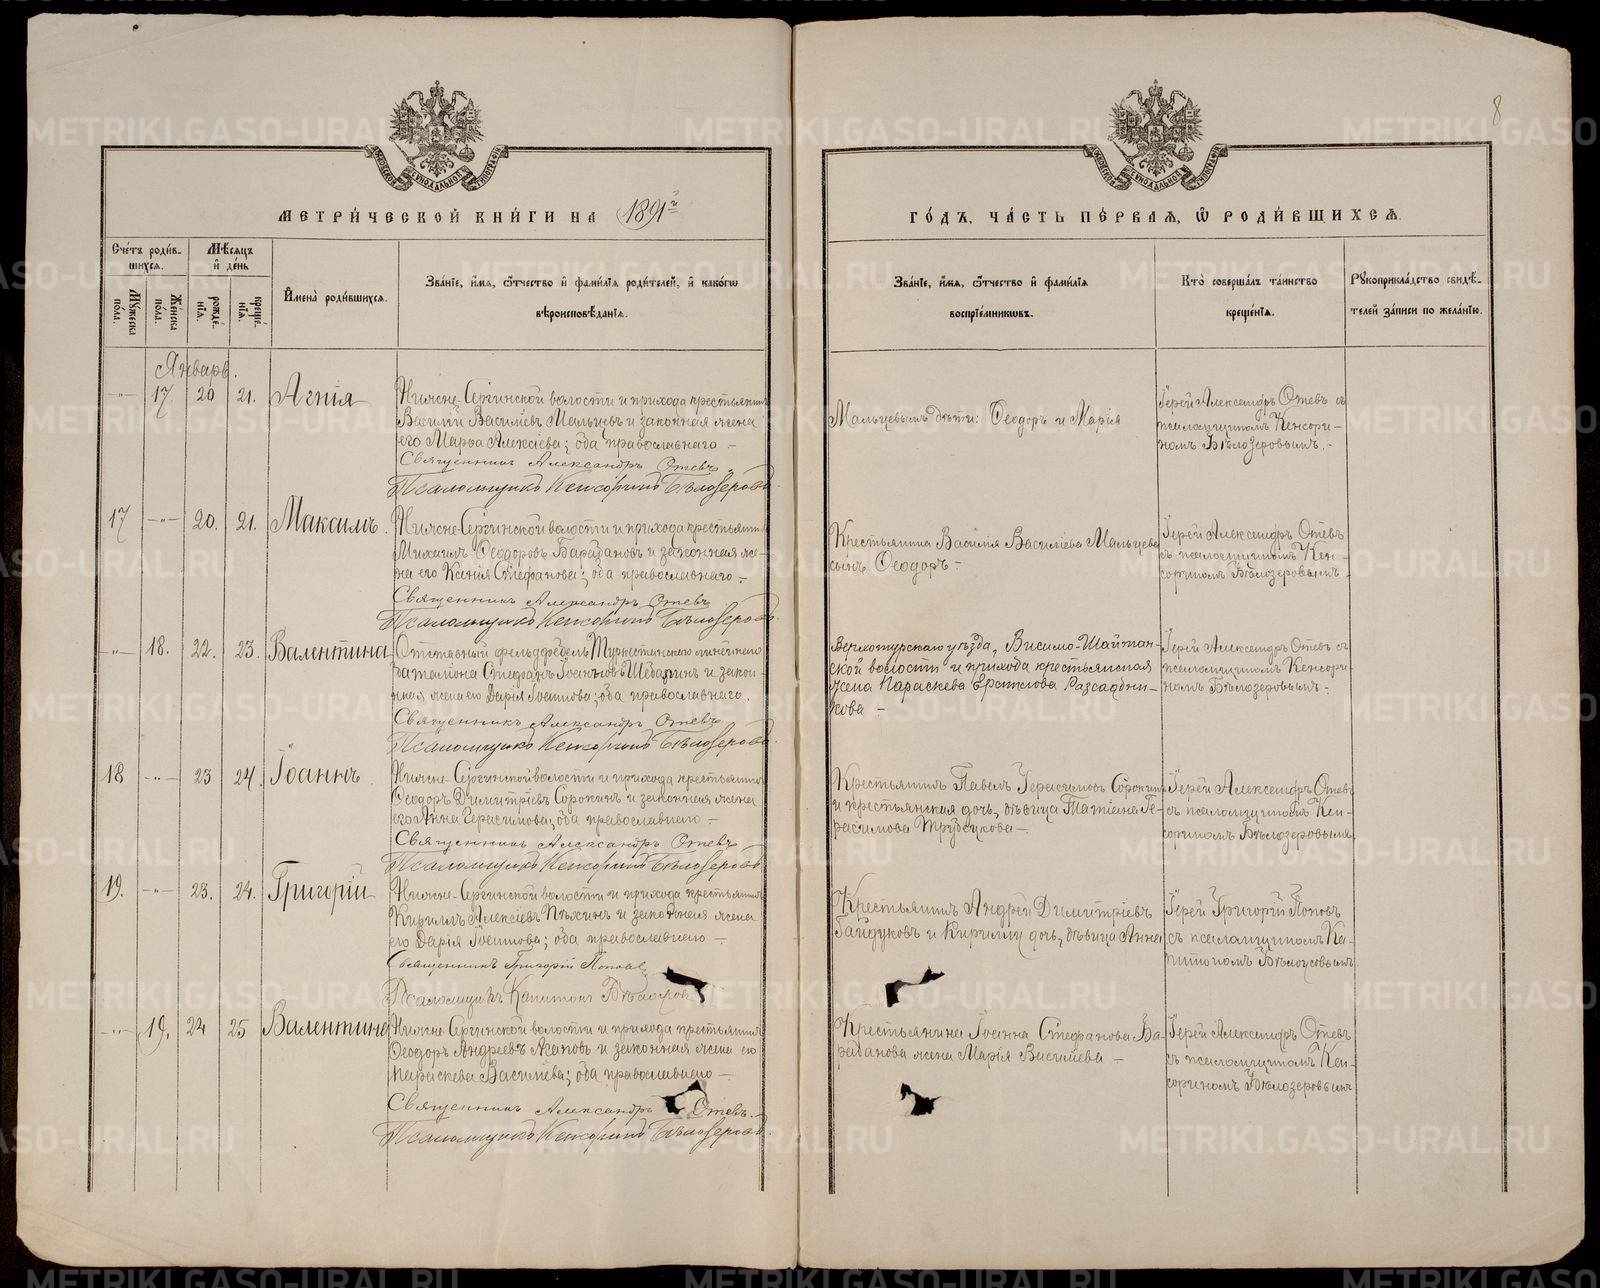 8
МЕТРИЧЕСКОЙ КНИГИ НА 1891й
ГОДЪ, ЧАСТЬ ПЕРВАЯ, Ѡ РОДИВШИХСЯ.
Счетъ родив-
шихся.
Мужеска пола.
Женска пола.
Мѣсяцъ и день
рожденія.
крещенія.
Имена родившихся.
Званіе, имя, отчество и фамилія родителей, и какогѡ
вѣроисповѣданія.
Званіе, имя, отчество и фамилія
воспріемниковъ.
Кто совершалъ таинство
крещенія.
Рукоприкладство свидѣ-
телей записи по желанію.
Январь.
-„- 17 20 21. Агнія
Нижне-Сергинской волости и прихода крестьянинъ
Василій Василіевъ Мальцевъ и законная жена
его Марѳа Алексіева; оба православнаго.—
Священникъ Александръ Отевъ.
Псаломщикъ Кенсоринъ Бѣлозеровъ
Мальцевымъ дѣти: Ѳеодоръ и Марія
Іерей Александръ Отевъ съ
псаломщикомъ Кенсори-
номъ Бѣлозеровымъ.-
17 -„- 20. 21. Максимъ.
Нижне-Сергинской волости и прихода крестьянинъ
Михаилъ Ѳеодоровъ Барадановъ и законная же-
на его Ксенія Стефанова; оба православнаго.-
Священникъ Александръ Отевъ
Псаломщикъ Кенсоринъ Бѣлозеровъ
Крестьянина Василія Василіева Мальцева
сынъ Ѳеодоръ.-
Іерей Александръ Отевъ
съ псаломщикомъ Кен-
сориномъ Бѣлозеровымъ.
-„- 18. 22. 23. Валентина
Отставный фельдфебель Туркестанскаго линейнаго
баталіона Стефанъ Іоанновъ и закон-
ная жена его Дарія; оба православнаго.
Священникъ Александръ Отевъ
Псаломщикъ Кенсоринъ Бѣлозеровъ
Верхотурскаго уѣзда, Висимо-Шайтан-
ской волости и прихода крестьянская
жена Параскева Разсадни-
кова -
Іерей Александръ Отевъ съ
псаломщикомъ Кенсори-
номъ Бѣлозеровымъ.-
18 -„- 23 24. Іоаннъ
Нижне-Сергинской волости и прихода крестьянинъ
Ѳеодоръ Димитріевъ Сорокинъ и законная жена
его Анна Герасимова; оба православнаго.—
Священникъ Александръ Отевъ
Псаломщикъ Кенсоринъ Бѣлозеровъ
Крестьянинъ Павелъ Герасимовъ Сорокинъ
и крестьянская дочь, дѣвица Татіана Ге-
расимова Трубецкова.—
Іерей Александръ Отевъ
съ псаломщикомъ Кен-
сориномъ Бѣлозеровымъ
19. -„- 23. 24. Григорій
Нижне-Сергинской волости и прихода крестьянинъ
Кириллъ Алексіевъ и законная жена
его Дарія; оба православнаго—.
Священникъ Григорій Поповъ
Псаломщикъ Капитонъ
Крестьянинъ Андрей Димитріевъ
Гайдуковъ и Кириллу дочь, дѣвица Анна
Іерей Григорій Поповъ
съ псаломщикомъ Ка-
питономъ
-„- 19. 24 25 Валентина
Нижне-Сергинской волости и прихода крестьянинъ
Ѳеодоръ Андреевъ Агаповъ и законная жена его
Параскева Василіева; оба православнаго—.
Священникъ Александръ Отевъ.-
Псаломщикъ Кенсоринъ Бѣлозеровъ
Крестьянина Іоанна Стефанова Ба-
раданова жена Марія Василіева —
Іерей Александръ Отевъ
съ псаломщикомъ Кен-
сориномъ Бѣлозеровымъ
METRIKI.GASO-URAL.RU